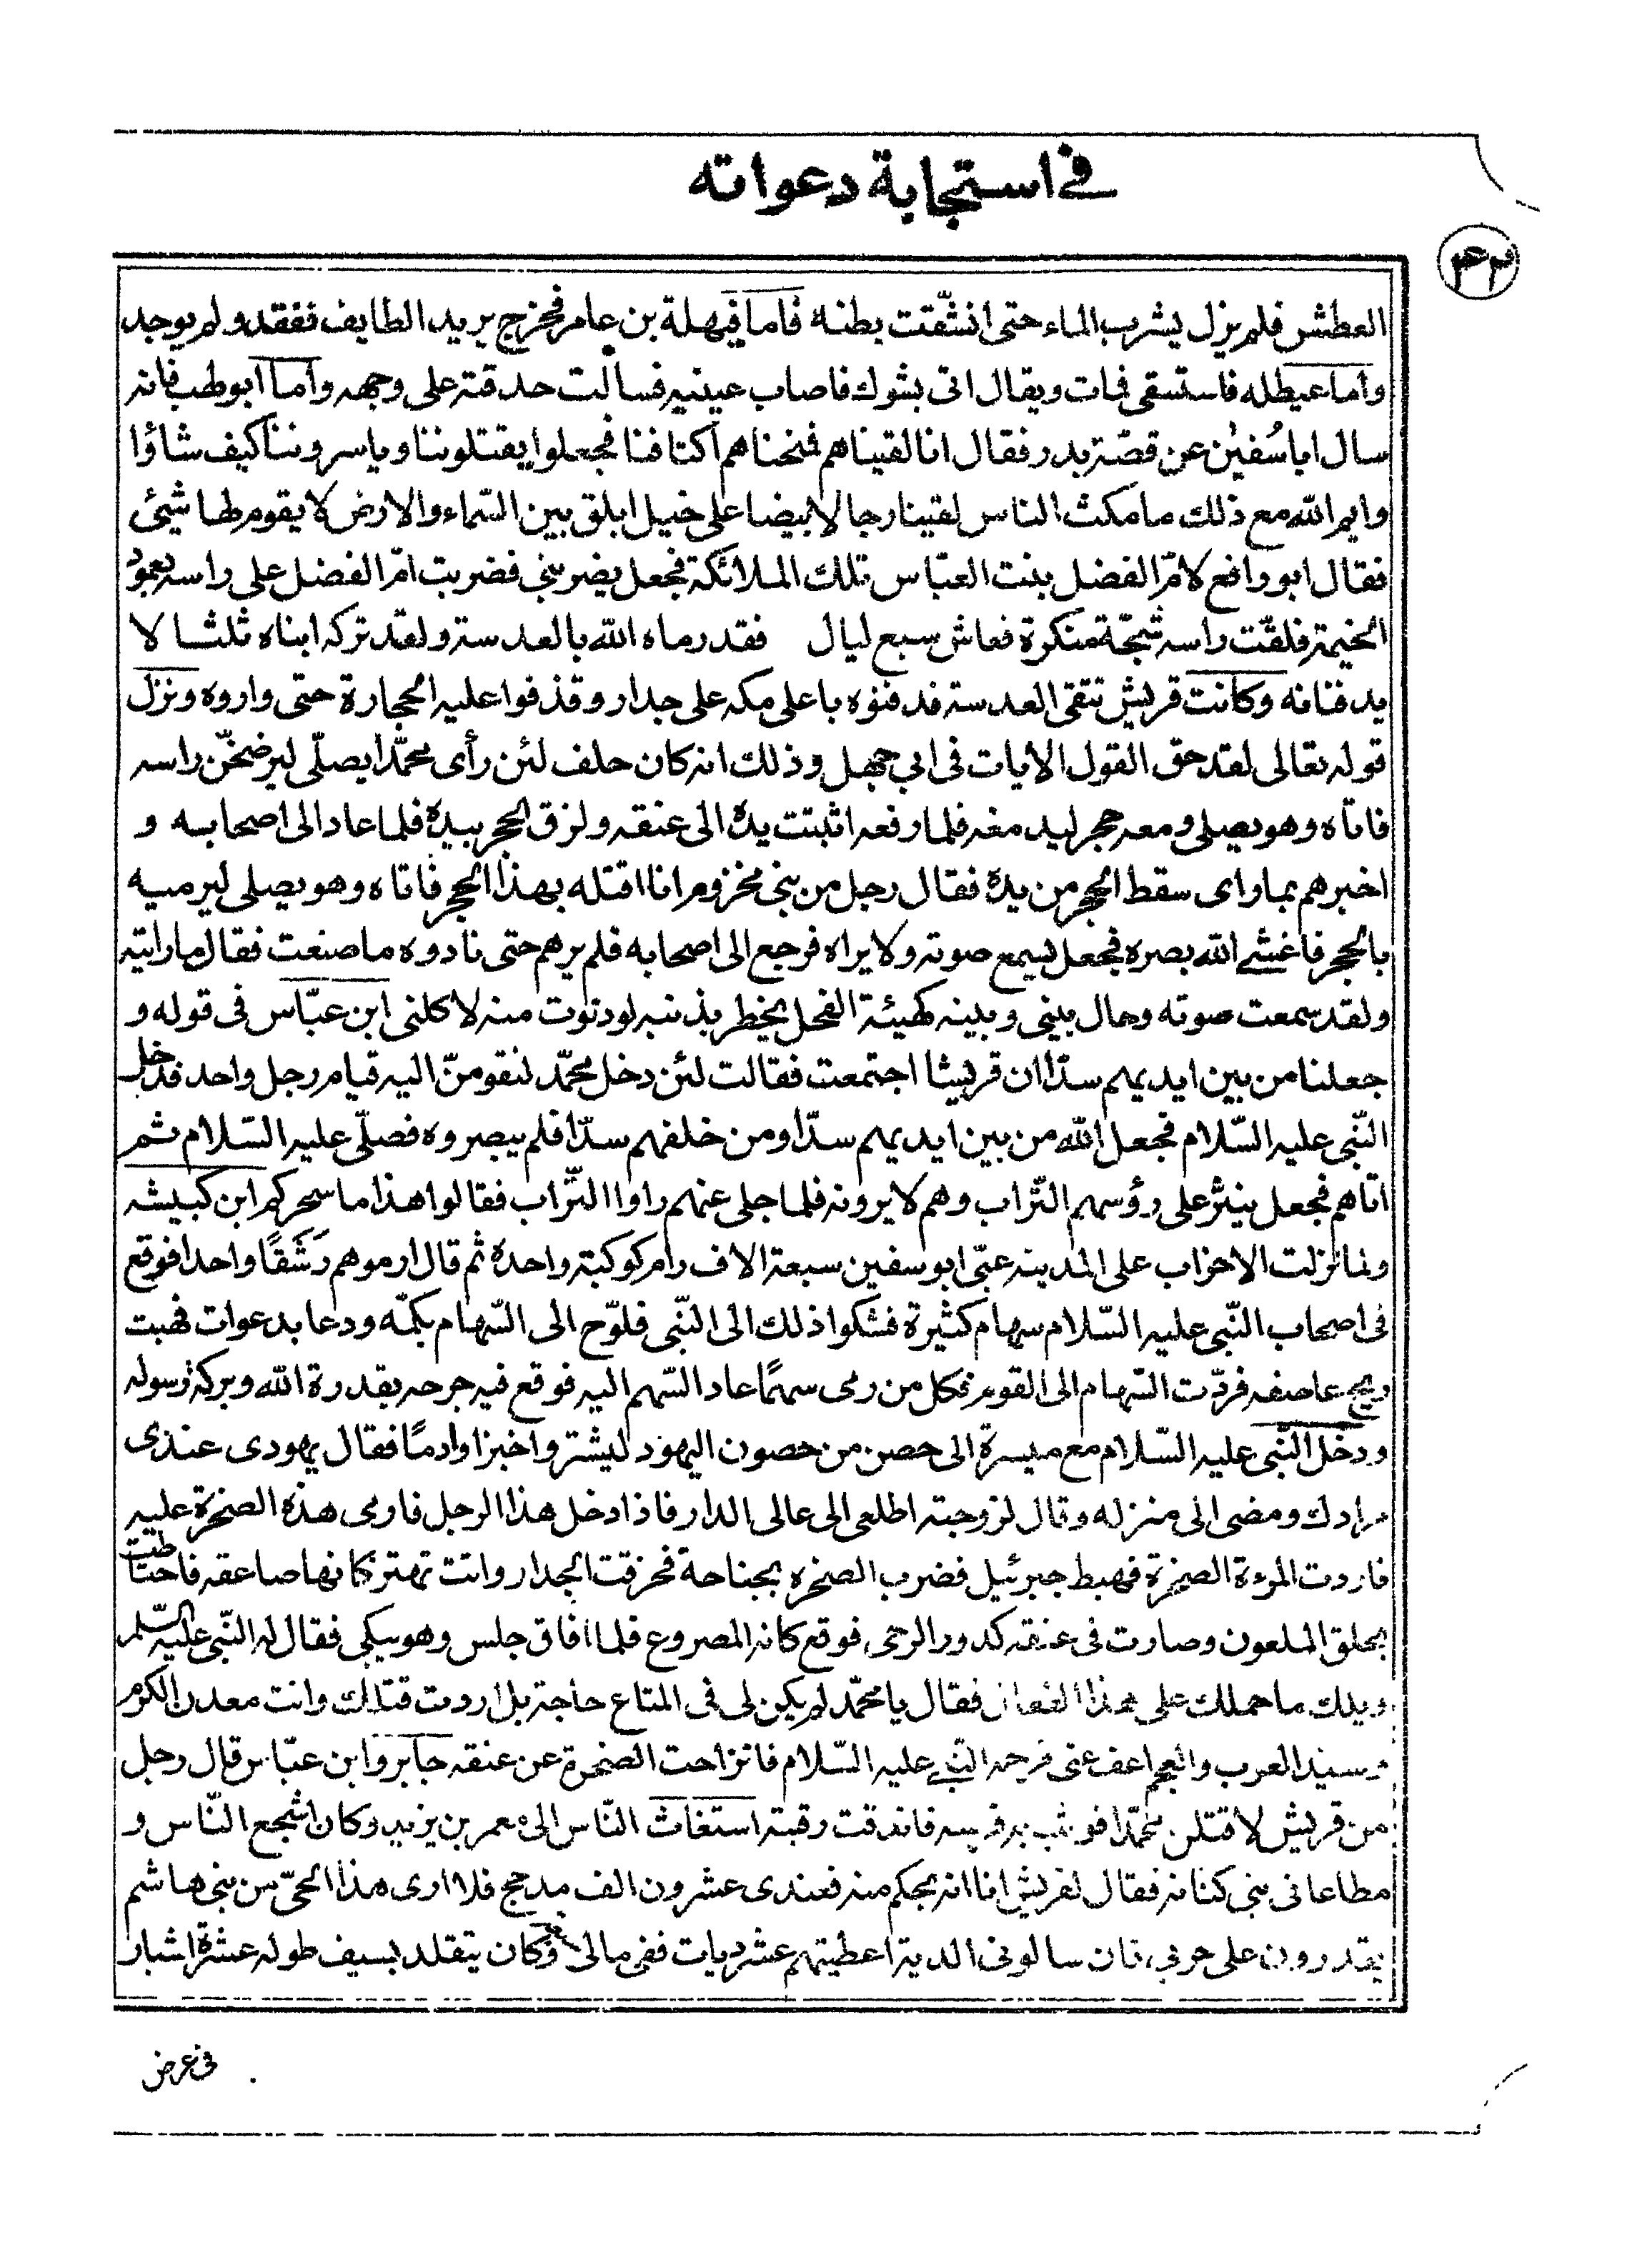 في استجابة دعواته
٤٢
العطش فلم يزل يشرب الماء حتى انشقت بطنه فاما فيهلة بن عامر فخرج يريد الطايف ففقد ولم يوجد
واما عيطله فاستسقى فمات ويقال اتى بشوك فاصاب عينيه فسالت حدقته على وجهه واما ابو طهب فانه
سال ابا سُفين عن قصّة بدر فقال انا لقيناهم فمنحناهم اكتافنا فجعلوا يقتلوننا وياسروننا كيف شاؤا
وايم الله مع ذلك ما مكث الناس لقينا رجالا بيضا على خيل ابلق بين السّماء والارض لا يقوم لها شيئ
فقال ابو رافع لامّ الفضل بنت العبّاس تلك الملائكة فجعل يضربني فضربت امّ الفضل على راسه بعمود
الخيمة فلقّت راسه شجّة منكرة فعاش سبع ليال فقد رماه الله بالعدسة ولقد تركه ابناه ثلثا لا
يدفنانه وكانت قريش تتقى العدسة فدفنوه باعلى مكه على جدار وقذفوا عليه الحجارة حتى واروه ونزل
قوله تعالى لقد حق القول الايات فى ابي جهل وذلك انه كان حلف لئن رأى محمّدا يصلّى ليرضخنّ راسه
فاتاه وهو يصلى ومعه حجر ليدمغه فلما رفعه اثبتت يده الى عنقه ولزق الحجر بيده فلما عاد الى اصحابه و
اخبرهم بما راى سقط الحجر من يده فقال رجل من بني مخزوم انا اقتله بهذا الحجر فاتاه وهو يصلى ليرميه
بالحجر فاغشى الله بصره فجعل يسمع صوته ولا يراه فرجع الى اصحابه فلم يرهم حتى نادوه ما صنعت فقال ما رايته
ولقد سمعت صوته وحال بيني وبينه كهيئة الفحل يخطر بذنبه لو دنوت منه لاكلنى ابن عبّاس فى قوله و
جعلنا من بين ايديهم سدّا ان قريشا اجتمعت فقالت لئن دخل محمّد لنقومنّ اليه قيام رجل واحد فدخل
النّبى عليه السّلام فجعل الله من بين ايديهم سدّا ومن خلفهم سدّا فلم يبصروه فصلّى عليه السّلام ثم
اتاهم فجعل ينثر على رؤسهم التّراب وهم لا يرونه فلما جلى عنهم راوا التّراب فقالوا هذا ما سحركم ابن كبيشه
ولما نزلت الاحزاب على المدينه عبّى ابو سفين سبعة الاف رام كوكبة واحدة ثم قال ارموهم رَشَقًا واحدا فوقع
فى اصحاب النّبى عليه السّلام سهام كثيرة فشكوا ذلك الى النّبى فلوّح الى السّهام بكمّه ودعا بدعوات فهبت
ريح عاصفه فردّت السّهام الى القوم فكل من رمى سهمًا عاد السّهم اليه فوقع فيه جرحه بقدرة الله وبركة رسوله
ودخل النّبى عليه السّلام مع ميسرة الى حصن من حصون اليهود ليشتروا خبزا وادمًا فقال يهودى عندى
مرادك ومضى الى منزله وقال لزوجته اطلعى الى عالى الدار فاذا دخل هذا الرجل فارمى هذه الصخرة عليه
فاردت المرءة الصخرة فهبط جبرئيل فضرب الصخره بجناحة فخرقت الجدار واتت تهتز كانها صاعقه فاحتاطت
بحلق الملعون وصارت فى عنقه كدور الرحى فوقع كانه المصروع فلما افاق جلس وهو يبكى فقال له النّبى عليه السّلم
ويلك ما حملك على هذا الفعال فقال يا محمّد لم يكن لى فى المتاع حاجة بل اردت قتلك وانت معدن الكرم
وسيد العرب والعجم اعف عنى فرحمه النّبى عليه السّلام فانزاحت الصخرة عن عنقه جابر وابن عبّاس قال رجل
من قريش لاقتلن محمّدا فوثب به فرسه فاندقت رقبته استغاث النّاس الى معمر بن يزيد وكان اشجع النّاس و
مطاعا فى بنى كنانه فقال لقريش انا اريحكم منه فعندى عشرون الف مدجج فلا ارى هذا الحىّ من بنى هاشم
يقدرون على حربى فان سالونى الدية اعطيتهم عشر ديات ففى مالى وكان يتقلد بسيف طوله عشرة اشبار
فى عرض